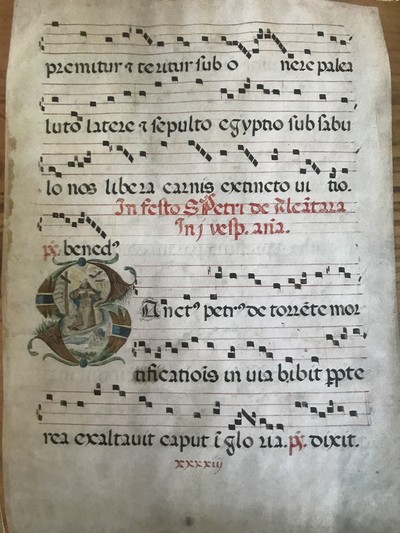 premitur ⁊ teritur sub o nere palea
luto latere ⁊ sepulto egyptio sub sabu
lo nos libera carnis extincto ui tio.
In festo S. Petri de Alcātara
In j vesp. aña.
ps. benedꝰ
Sanctꝰ petrꝰ de torrēte mor
tificatiōis in uia bibit ꝓpte
rea exaltauit caput ī glo ria. ps. dixit.
xxxxiij